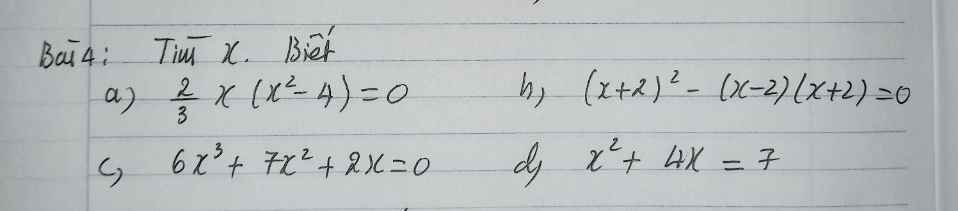 Bài 4: Tìm x. Biết
a) 2/3 x (x² - 4) = 0 b) (x+2)² - (x-2)(x+2) = 0
c) 6x³ + 7x² + 2x = 0 d) x² + 4x = 7